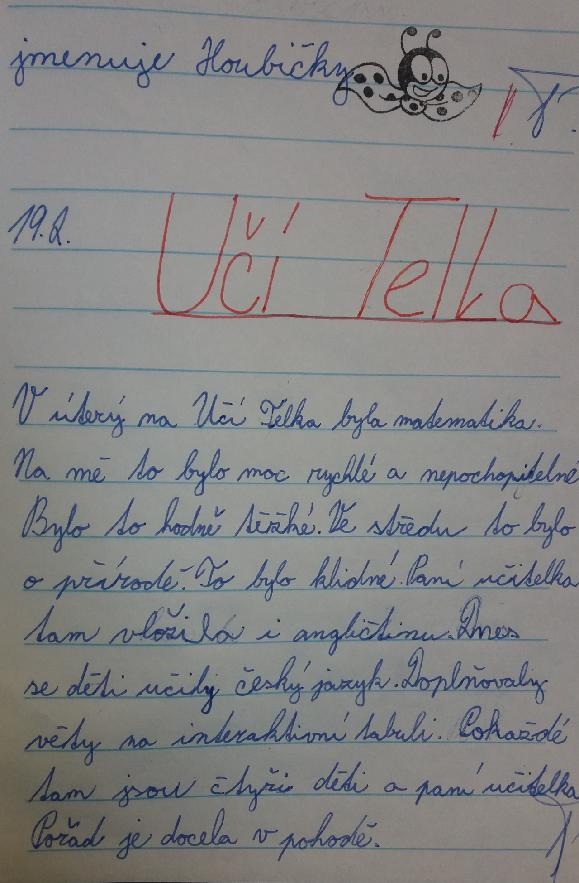 jmenuje Houbičky
19.2.
Učí Telka
V úterý na Učí Telka byla matematika.
Na mě to bylo moc rychlé a nepochopitelné
Bylo to hodně těžké. Ve středu to bylo
o přírodě. To bylo klidné. Paní učitelka
tam vložila i angličtinu. Dnes
se děti učily český jazyk. Doplňovaly
věty na interaktivní tabuli. Pokaždé
tam jsou čtyři děti a paní učitelka
Pořad je docela v pohodě.